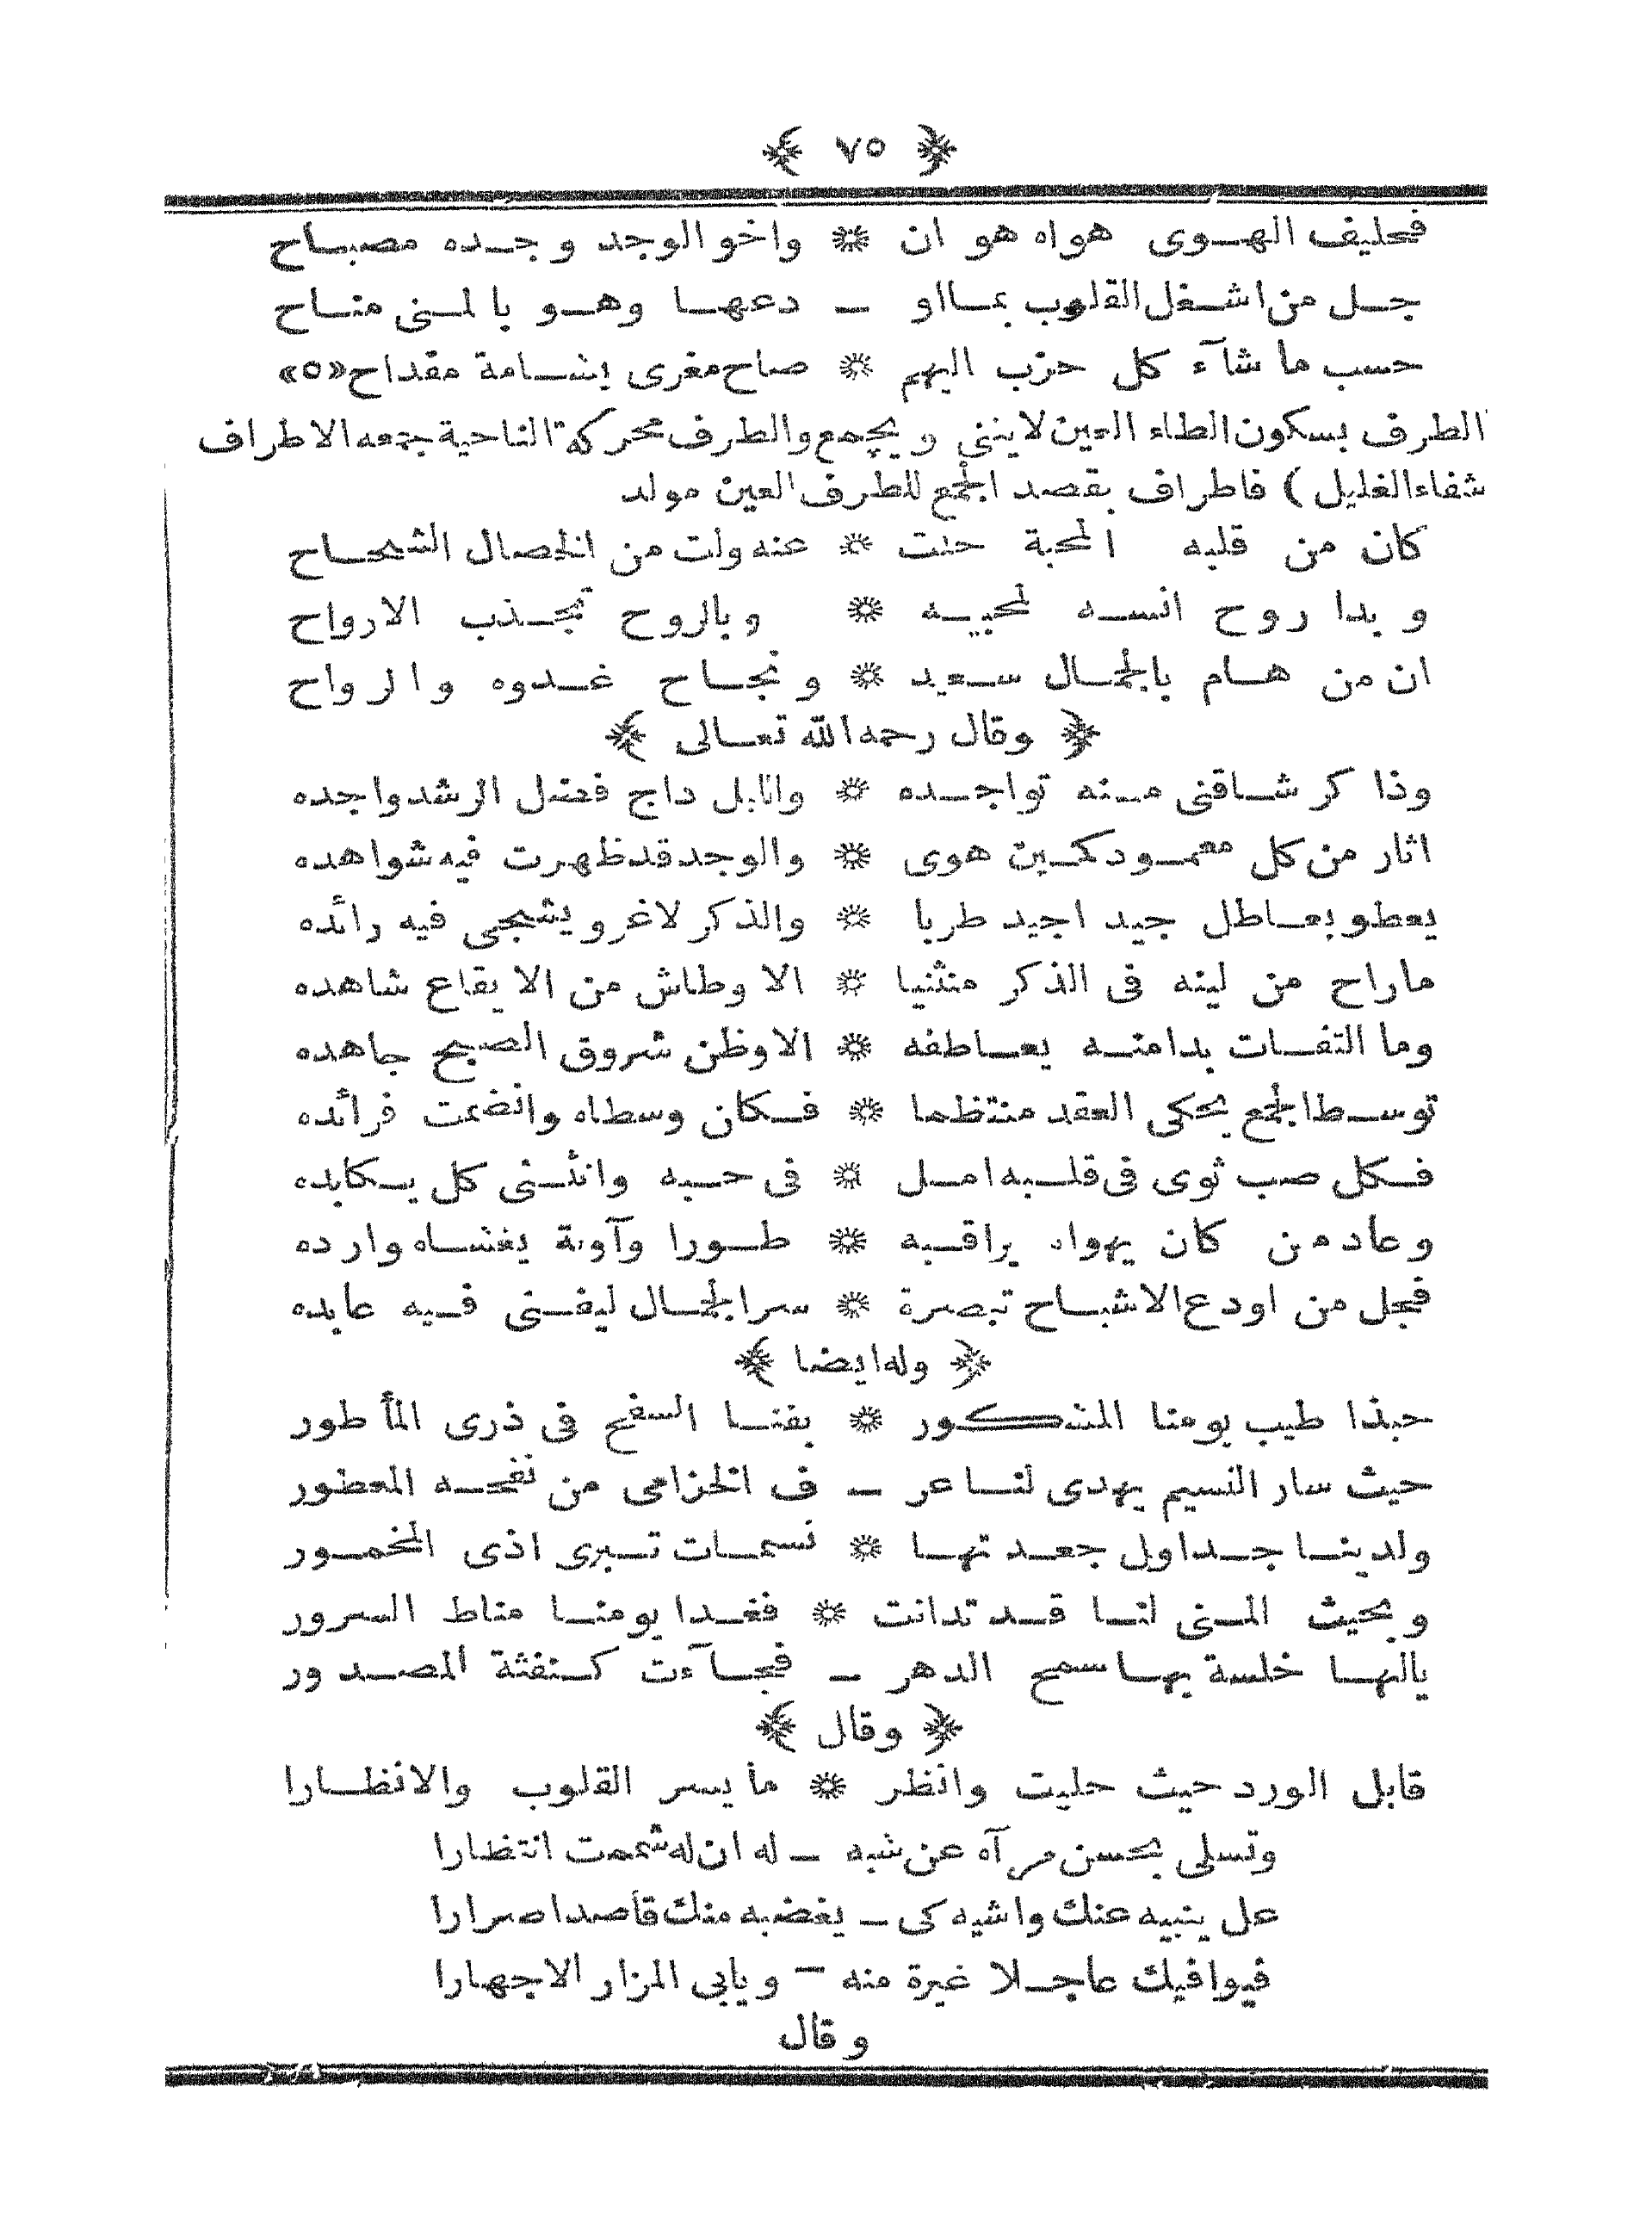 ﴿ ٧٥ ﴾
فحليف الهـوى هواه هو ان ❋ واخو الوجد و جـده مصبـاح
جـل من اشـغل القلوب بمـااو ـ دعهـا وهـو بالمـنى متـاح
حسب ما شآء كل حزب اليهم ❋ صاح مغرى بشـامة مقداح «٥»
الطرف بسكون الطاء العين لايثنى ويجمع والطرف محركة الناحية جمعه الاطراف
شفاء الغليل ) فاطراف بقصد الجمع للطرف العين مولد
كان من قلبه المحبة حلت ❋ عنه ولت من الخصال الشحـاح
و بدا روح انسـه لمحبيـه ❋ وبالروح تجـذب الارواح
ان من هـام بالجمـال سـعيد ❋ ونجـاح غـدوه والرواح
﴿ وقال رحمه الله تعـالى ﴾
وذا كر شـاقنى مـنه تواجـده ❋ وانابل داج فضل الرشد واجده
اثار من كل معمـود كمـين هوى ❋ والوجد قد ظهرت فيه شواهده
يعطو بعـاطل جيد اجيد طربا ❋ والذكر لاغرو يشجى فيه رائده
ماراح من لينه فى الذكر منثنيا ❋ الا وطاش من الايقاع شاهده
وما التفـات بدا منـه يعـاطفه ❋ الا وظن شروق الصبح جاهده
توسـط الجمع يحكى العقد منتظما ❋ فـكان وسطاه وانضمت فرائده
فـكل صب ثوى فى قلـبه امـل ❋ فى حـبه وانثـنى كل يـكابده
وعاد من كان يهواه يراقـبه ❋ طـورا وآونة يغشـاه وارده
فجل من اودع الاشبـاح تبصرة ❋ سر الجمـال ليفـنى فـيه عابده
﴿ وله ايضا ﴾
حبذا طيب يومنا المشكور ❋ بفنـا السفح فى ذرى المأطور
حيث سار النسيم يهدى لنـا عر ـ ف الخزامى من نفحـه المعطور
ولدينـا جـداول جعـدتهـا ❋ نسمـات تـبرى اذى المخمـور
وبحيث المـنى لنـا قـد تدانت ❋ فغـدا يومنـا مناط السرور
يالهـا خلسة بهـا سمح الدهر ـ فجـآءت كـنفثة المصـدور
﴿ وقال ﴾
قابل الورد حيث حليت وانظر ❋ ما يسر القلوب والانظـارا
وتسلى بحسن مرآه عن شبه ـ له ان له شممت انتظارا
عل ينبيه عنك واشيه كى ـ يغضبه منك قاصدا صرارا
فيوافيك عاجـلا غيرة منه ـ ويابى المزار الاجهارا
وقال